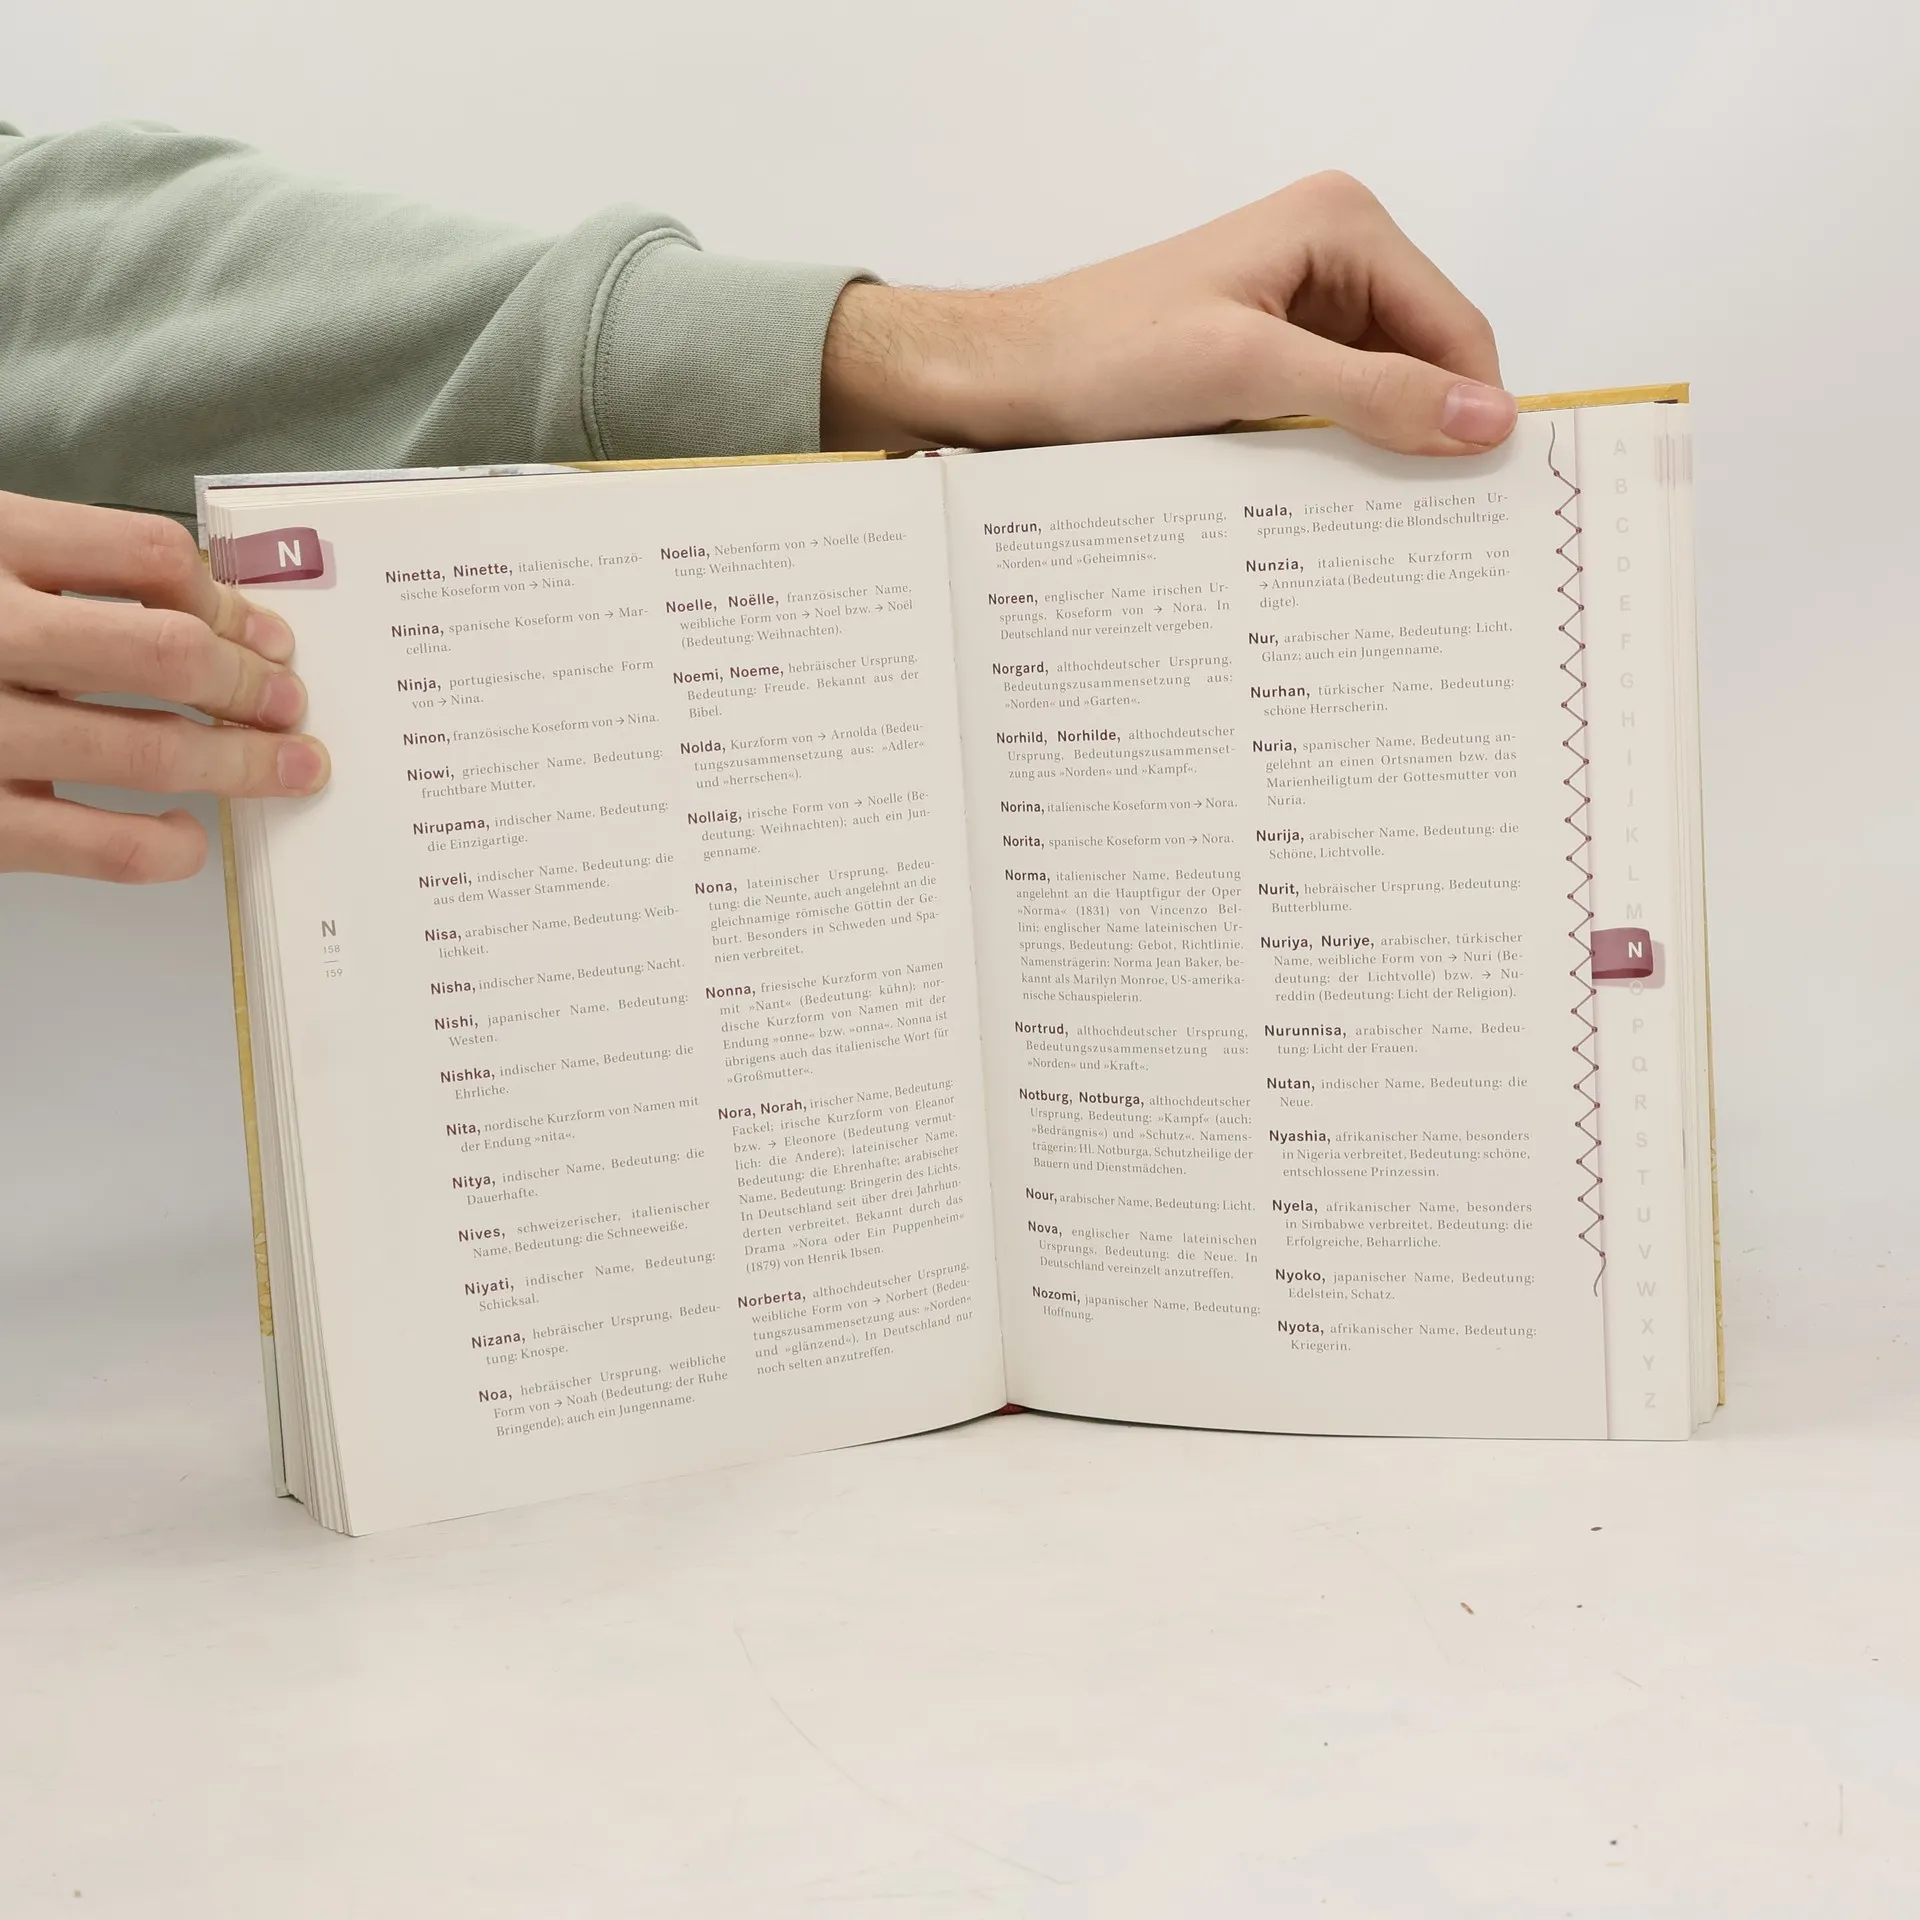 N
N
158
159
Ninetta, Ninette, italienische, franzö-
sische Koseform von → Nina.
Ninina, spanische Koseform von → Mar-
cellina.
Ninja, portugiesische, spanische Form
von → Nina.
Ninon, französische Koseform von → Nina.
Niowi, griechischer Name, Bedeutung:
fruchtbare Mutter.
Nirupama, indischer Name, Bedeutung:
die Einzigartige.
Nirveli, indischer Name, Bedeutung: die
aus dem Wasser Stammende.
Nisa, arabischer Name, Bedeutung: Weib-
lichkeit.
Nisha, indischer Name, Bedeutung: Nacht.
Nishi, japanischer Name, Bedeutung:
Westen.
Nishka, indischer Name, Bedeutung: die
Ehrliche.
Nita, nordische Kurzform von Namen mit
der Endung »nita«.
Nitya, indischer Name, Bedeutung: die
Dauerhafte.
Nives, schweizerischer, italienischer
Name, Bedeutung: die Schneeweiße.
Niyati, indischer Name, Bedeutung:
Schicksal.
Nizana, hebräischer Ursprung, Bedeu-
tung: Knospe.
Noa, hebräischer Ursprung, weibliche
Form von → Noah (Bedeutung: der Ruhe
Bringende); auch ein Jungenname.
Noelia, Nebenform von → Noelle (Bedeu-
tung: Weihnachten).
Noelle, Noëlle, französischer Name,
weibliche Form von → Noel bzw. → Noël
(Bedeutung: Weihnachten).
Noemi, Noeme, hebräischer Ursprung,
Bedeutung: Freude. Bekannt aus der
Bibel.
Nolda, Kurzform von → Arnolda (Bedeu-
tungszusammensetzung aus: »Adler«
und »herrschen«).
Nollaig, irische Form von → Noelle (Be-
deutung: Weihnachten); auch ein Jun-
genname.
Nona, lateinischer Ursprung, Bedeu-
tung: die Neunte, auch angelehnt an die
gleichnamige römische Göttin der Ge-
burt. Besonders in Schweden und Spa-
nien verbreitet.
Nonna, friesische Kurzform von Namen
mit »Nant« (Bedeutung: kühn); nor-
dische Kurzform von Namen mit der
Endung »onne« bzw. »onna«. Nonna ist
übrigens auch das italienische Wort für
»Großmutter«.
Nora, Norah, irischer Name, Bedeutung:
Fackel; irische Kurzform von Eleanor
bzw. → Eleonore (Bedeutung vermut-
lich: die Andere); lateinischer Name,
Bedeutung: die Ehrenhafte; arabischer
Name, Bedeutung: Bringerin des Lichts.
In Deutschland seit über drei Jahrhun-
derten verbreitet. Bekannt durch das
Drama »Nora oder Ein Puppenheim«
(1879) von Henrik Ibsen.
Norberta, althochdeutscher Ursprung,
weibliche Form von → Norbert (Bedeu-
tungszusammensetzung aus: »Norden«
und »glänzend«). In Deutschland nur
noch selten anzutreffen.
Nordrun, althochdeutscher Ursprung,
Bedeutungszusammensetzung aus:
»Norden« und »Geheimnis«.
Noreen, englischer Name irischen Ur-
sprungs, Koseform von → Nora. In
Deutschland nur vereinzelt vergeben.
Norgard, althochdeutscher Ursprung,
Bedeutungszusammensetzung aus:
»Norden« und »Garten«.
Norhild, Norhilde, althochdeutscher
Ursprung, Bedeutungszusammenset-
zung aus »Norden« und »Kampf«.
Norina, italienische Koseform von → Nora.
Norita, spanische Koseform von → Nora.
Norma, italienischer Name, Bedeutung
angelehnt an die Hauptfigur der Oper
»Norma« (1831) von Vincenzo Bel-
lini; englischer Name lateinischen Ur-
sprungs, Bedeutung: Gebot, Richtlinie.
Namensträgerin: Norma Jean Baker, be-
kannt als Marilyn Monroe, US-amerika-
nische Schauspielerin.
Nortrud, althochdeutscher Ursprung,
Bedeutungszusammensetzung aus:
»Norden« und »Kraft«.
Notburg, Notburga, althochdeutscher
Ursprung, Bedeutung: »Kampf« (auch:
»Bedrängnis«) und »Schutz«. Namens-
trägerin: Hl. Notburga, Schutzheilige der
Bauern und Dienstmädchen.
Nour, arabischer Name, Bedeutung: Licht.
Nova, englischer Name lateinischen
Ursprungs, Bedeutung: die Neue. In
Deutschland vereinzelt anzutreffen.
Nozomi, japanischer Name, Bedeutung:
Hoffnung.
Nuala, irischer Name gälischen Ur-
sprungs, Bedeutung: die Blondschultrige.
Nunzia, italienische Kurzform von
→ Annunziata (Bedeutung: die Angekün-
digte).
Nur, arabischer Name, Bedeutung: Licht,
Glanz; auch ein Jungenname.
Nurhan, türkischer Name, Bedeutung:
schöne Herrscherin.
Nuria, spanischer Name, Bedeutung an-
gelehnt an einen Ortsnamen bzw. das
Marienheiligtum der Gottesmutter von
Nuria.
Nurija, arabischer Name, Bedeutung: die
Schöne, Lichtvolle.
Nurit, hebräischer Ursprung, Bedeutung:
Butterblume.
Nuriya, Nuriye, arabischer, türkischer
Name, weibliche Form von → Nuri (Be-
deutung: der Lichtvolle) bzw. → Nu-
reddin (Bedeutung: Licht der Religion).
Nurunnisa, arabischer Name, Bedeu-
tung: Licht der Frauen.
Nutan, indischer Name, Bedeutung: die
Neue.
Nyashia, afrikanischer Name, besonders
in Nigeria verbreitet, Bedeutung: schöne,
entschlossene Prinzessin.
Nyela, afrikanischer Name, besonders
in Simbabwe verbreitet, Bedeutung: die
Erfolgreiche, Beharrliche.
Nyoko, japanischer Name, Bedeutung:
Edelstein, Schatz.
Nyota, afrikanischer Name, Bedeutung:
Kriegerin.
A
B
C
D
E
F
G
H
I
J
K
L
M
N
O
P
Q
R
S
T
U
V
W
X
Y
Z